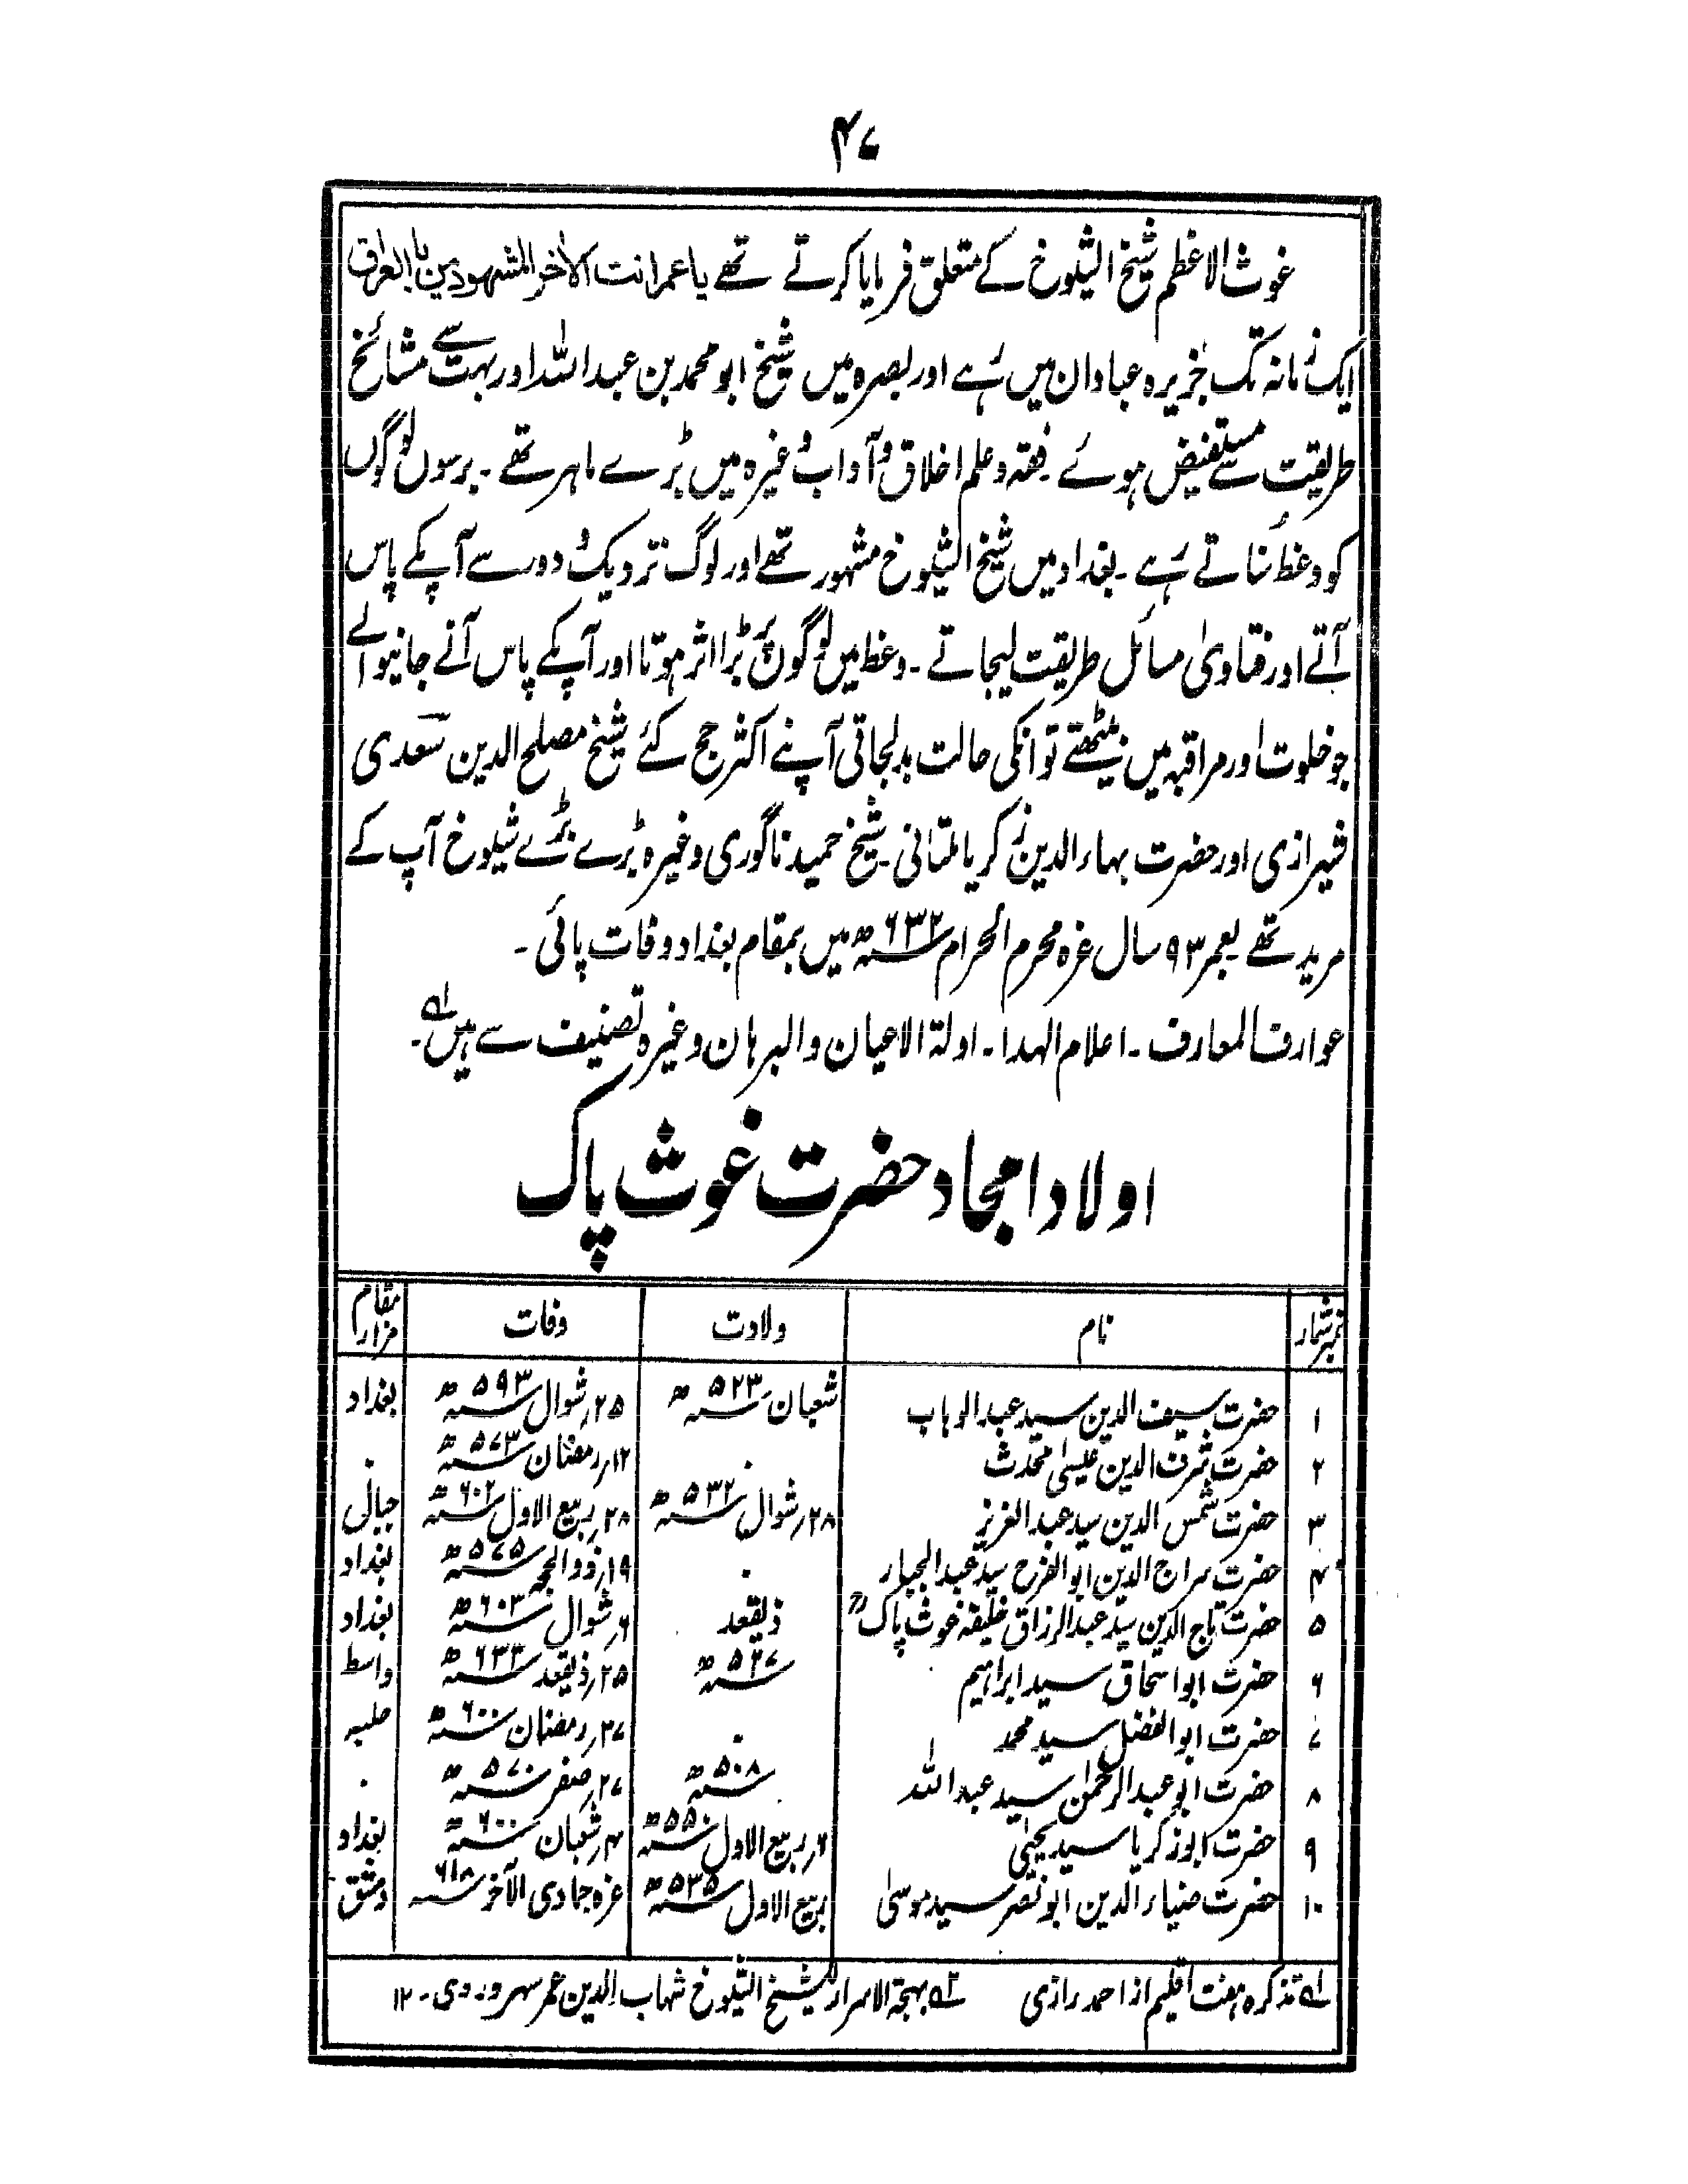 ۴۷
غوث الاعظم شیخ الشیوخ کے متعلق فرمایا کرتے تھے یا عمر انت اٰخر المشہودین بالعراق
ایک زمانہ تک جزیرہ عبادان میں رہے اور بصرہ میں شیخ ابو محمد بن عبد اللہ اور بہت سے مشائخ
طریقت سے مستفیض ہوئے۔ فقہ و علم اخلاق و آداب وغیرہ میں بڑے ماہر تھے۔ برسوں لوگوں
کو وعظ سناتے رہے۔ بغداد میں شیخ الشیوخ مشہور تھے اور لوگ نزدیک و دور سے آپکے پاس
آتے اور فتاویٰ مسائل طریقت لیجاتے۔ وعظ میں لوگوں پر بڑا اثر ہوتا اور آپکے پاس آنے جانیوالے
جو خلوت اور مراقبہ میں بیٹھتے تو انکی حالت بدلجاتی آپنے اکثر حج کئے شیخ مصلح الدین سعدی
شیرازی اور حضرت بہاء الدین زکریا ملتانی۔ شیخ حمید ناگوری وغیرہ بڑے بڑے شیوخ آپ کے
مرید تھے۔ بعمر ۹۳ سال غرہ محرم الحرام ۶۳۲ھ میں بمقام بغداد وفات پائی۔
عوارف المعارف۔ اعلام الہدا۔ اولۃ الاعیان والبرہان وغیرہ تصنیف سے ہیں۔
اولاد امجاد حضرت غوث پاک
نمبر شمار نام ولادت وفات مقام مزار
۱ حضرت سیف الدین سید عبد الوہاب شعبان ۵۲۳ھ ۲۵؍شوال ۵۹۳ھ بغداد
۲ حضرت شرف الدین عیسیٰ محدث ۰ ۱۲؍رمضان ۵۷۳ھ ۰
۳ حضرت شمس الدین سید عبد العزیز ۲۸؍شوال ۵۳۲ھ ۲۸؍ربیع الاول ۶۰۲ھ جبال
۴ حضرت سراج الدین ابو الفرح سید عبد الجبار ۰ ۱۹؍ذوالحجہ ۵۷۵ھ بغداد
۵ حضرت تاج الدین سید عبد الرزاق خلیفہ غوث پاکؒ ذیقعد ۶؍شوال ۶۰۳ھ بغداد
۶ حضرت ابو اسحاق سید ابراہیم ۵۲۷ھ ۲۵؍ذیقعد ۶۳۳ھ واسط
۷ حضرت ابو الفضل سید محمد ۰ ۲۷؍رمضان ۶۰۰ھ حلبہ
۸ حضرت ابو عبد الرحمٰن سید عبد اللہ ۵۰۸ھ ۲۷؍صفر ۵۷۰ھ ۰
۹ حضرت ابو زکریا سید یحییٰ ۶؍ربیع الاول ۵۵۰ھ ۴؍شعبان ۶۰۰ھ بغداد
۱۰ حضرت ضیاء الدین ابو نصر سید موسیٰ ربیع الاول ۵۳۵ھ غرہ جمادی الآخر ۶۱۸ دمشق
۱ہ تذکرہ ہفت اقلیم از احمد رازی ۲ہ بہجۃ الاسرار للشیخ الشیوخ شہاب الدین عمر سہروردی۔ ۱۲